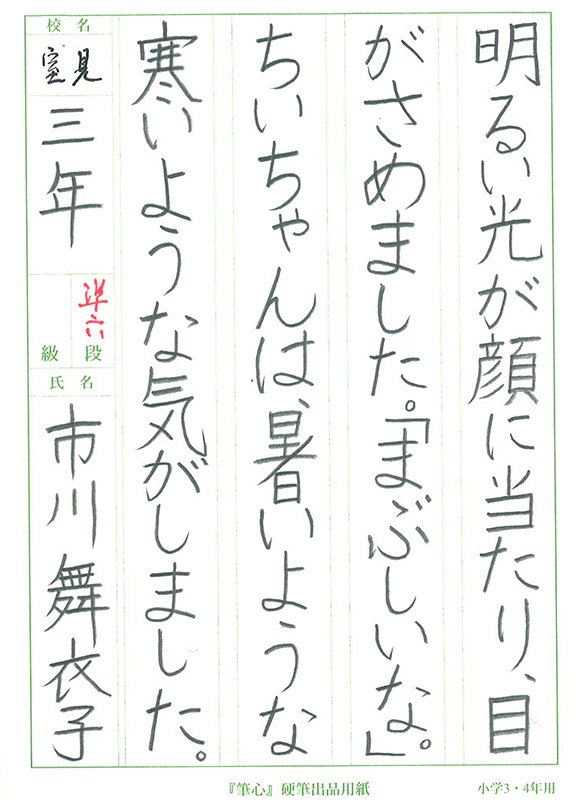 明るい光が顔に当たり、目
がさめました。「まぶしいな」。
ちいちゃんは、暑いような
寒いような気がしました。
校名
室見
三年
準六
級段
氏名
市川舞衣子
『筆心』硬筆出品用紙
小学3・4年用